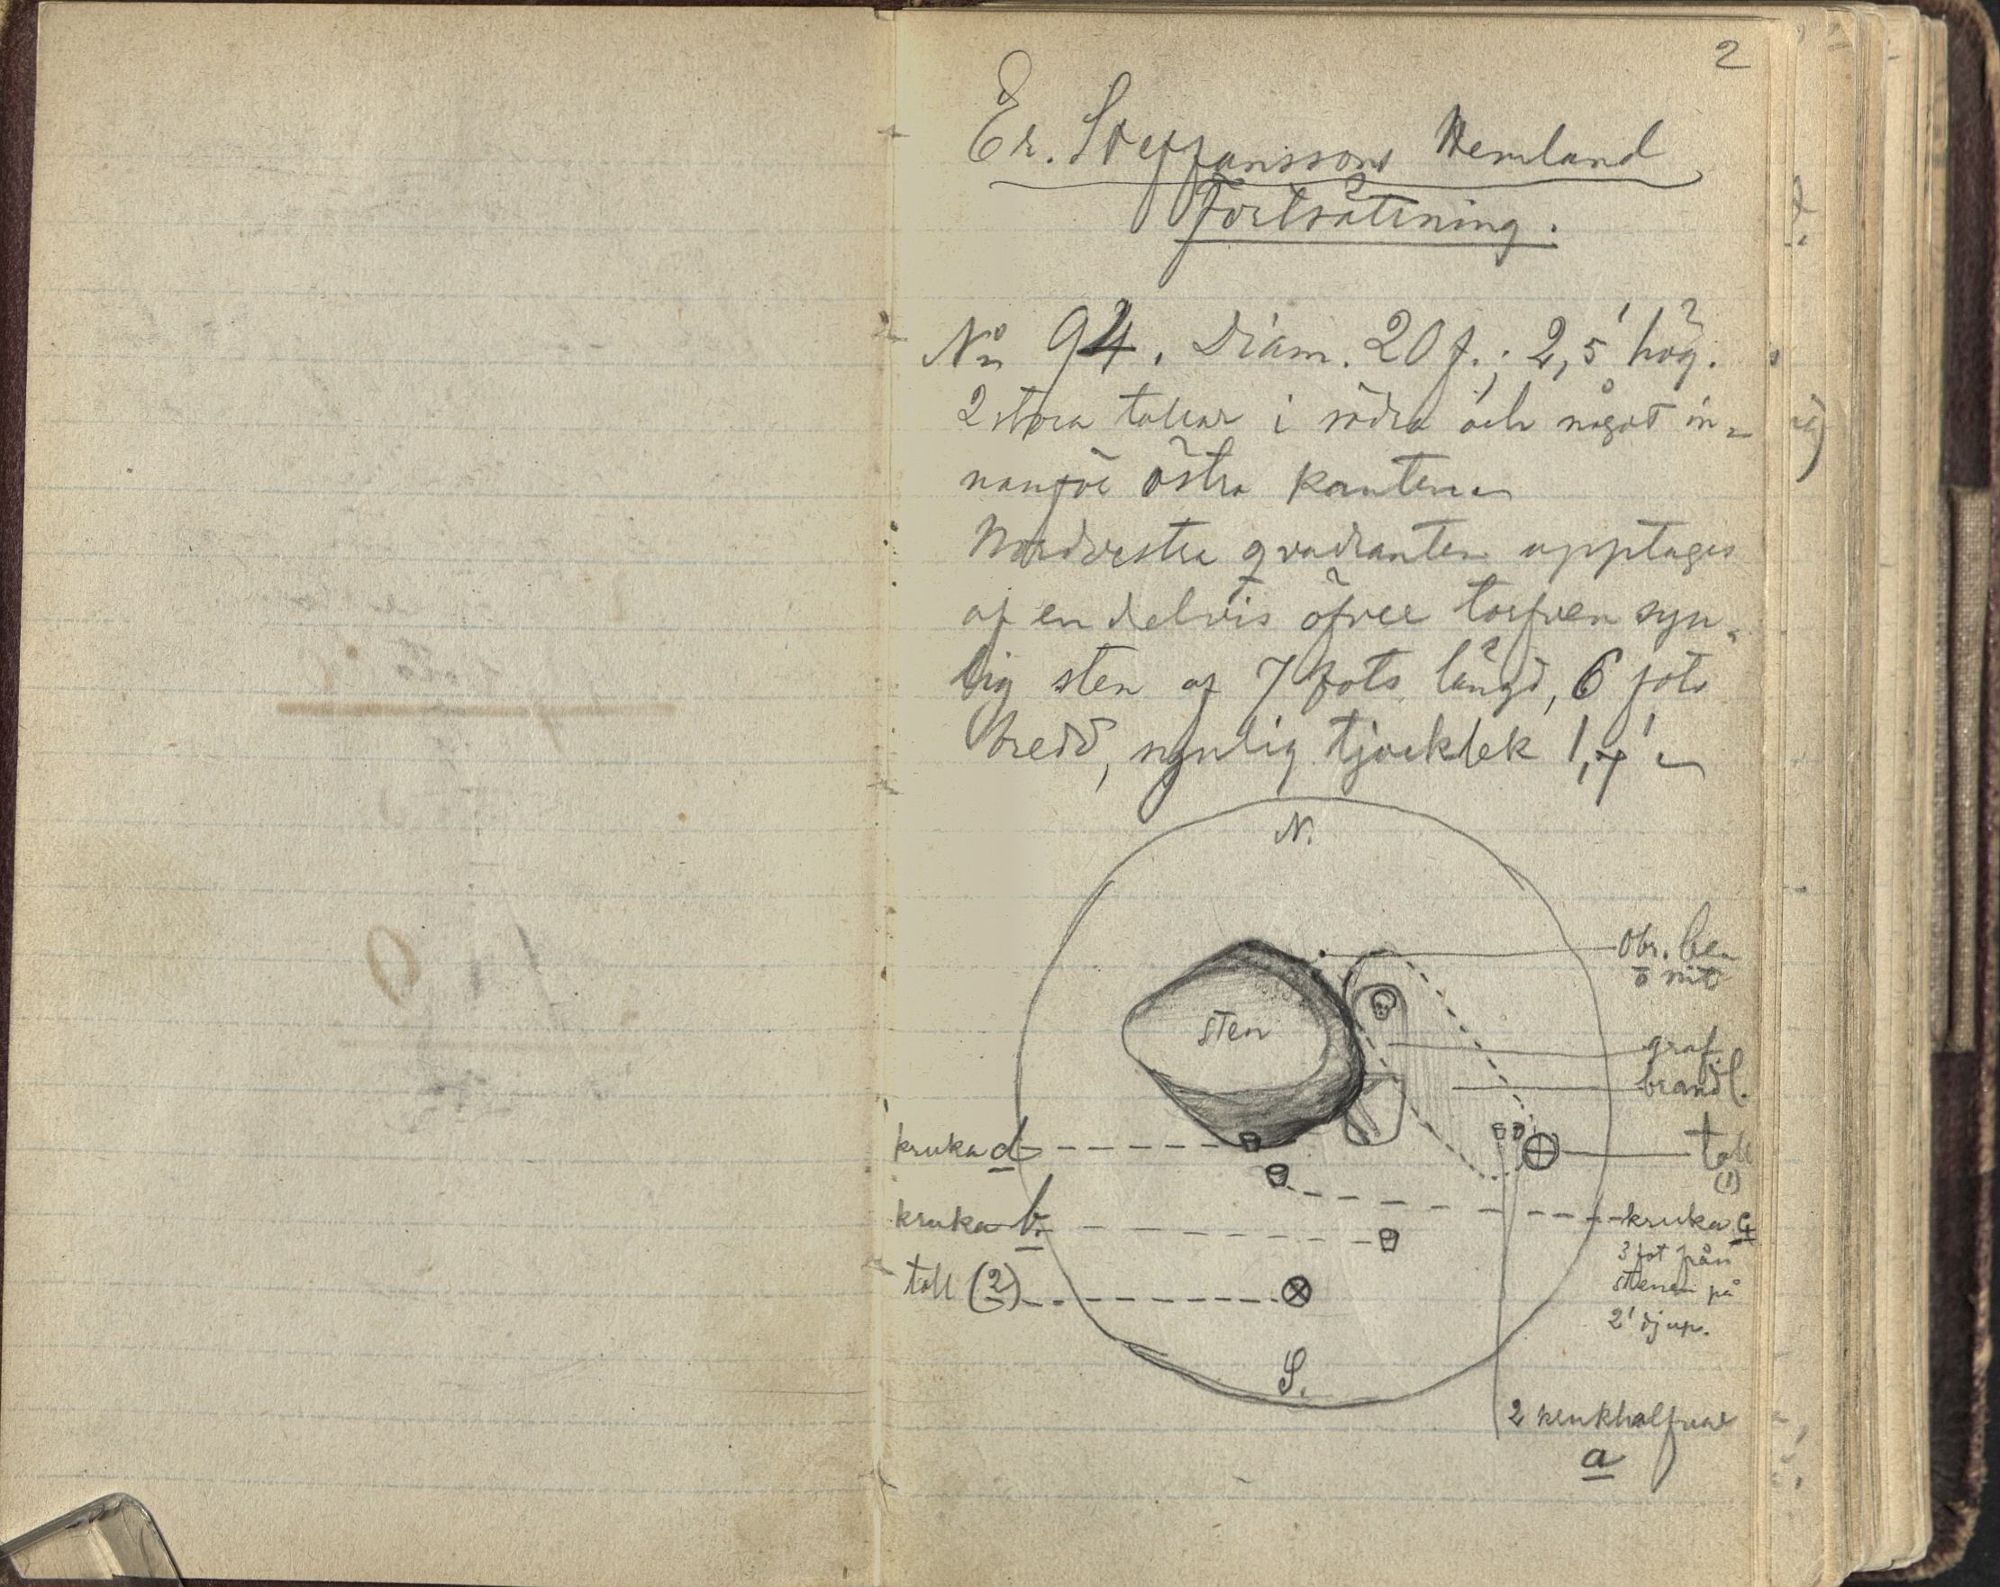 2
Er. Steffanssons Hemland
Fortsättning.
No 94. Diam. 20 f.; 2,5' hög.
2 stora tallar i södra och något in-
nanför östra kanten
Nordvestra qvadranten upptages
af en delvis öfver torfven syn-
lig sten af 7 fots längd, 6 fots
bredd, synlig tjocklek 1,4'
N.
Obr. ben
o nit
sten
graf
brandl.
kruka d
tall
(1)
kruka b.
kruka c
3 fot från
stenen på
2' djup.
tall (2)
S.
2 krukhalfvor
a